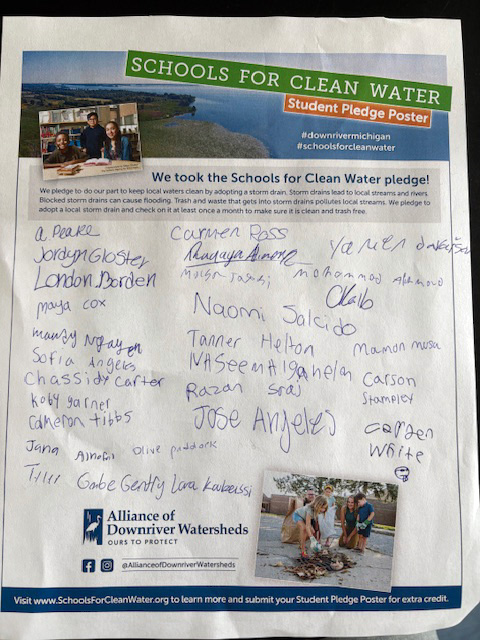 SCHOOLS FOR CLEAN WATER
Student Pledge Poster
#downrivermichigan
#schoolsforcleanwater
We took the Schools for Clean Water pledge!
We pledge to do our part to keep local waters clean by adopting a storm drain. Storm drains lead to local streams and rivers.
Blocked storm drains can cause flooding. Trash and waste that gets into storm drains pollutes local streams. We pledge to
adopt a local storm drain and check on it at least once a month to make sure it is clean and trash free.
a Peake
Carmen Ross
Jordyn Gloster
London Borden
mohammad
maya cox
Naomi Salcido
Tanner Helton
Mamon musa
Sofia Angeles
Chassidy Carter
Carson
Stampley
Razan
Koby garner
Jose Angeles
Cameron Tibbs
Carmen
White
Jana
Olive paddock
Gabe Gently
Lara
Alliance of
Downriver Watersheds
OURS TO PROTECT
@AllianceofDownriverWatersheds
Visit www.SchoolsForCleanWater.org to learn more and submit your Student Pledge Poster for extra credit.